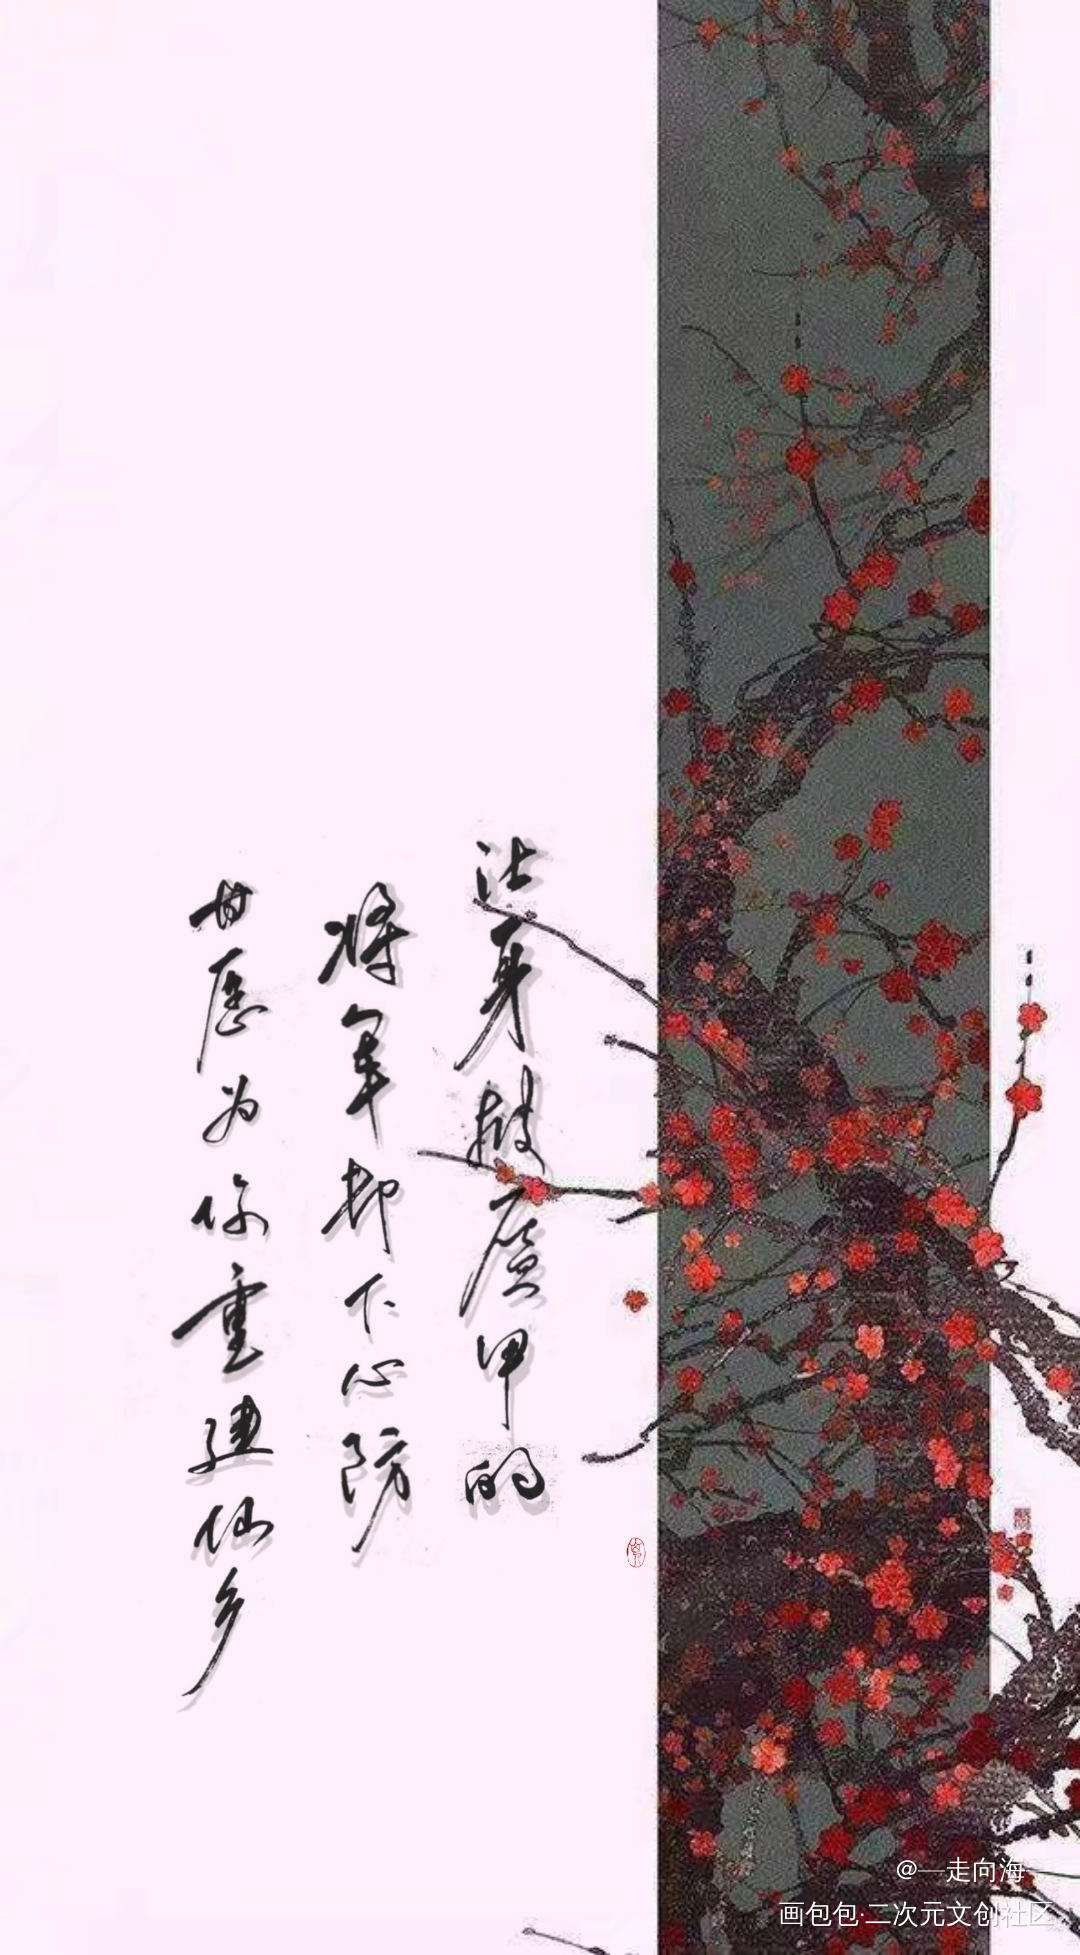 让身披盔甲的
将军卸下心防
甘愿为你重建仙乡
@一走向海一
画包包·二次元文创社区